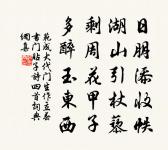 日明添收帙
湖山引杖藜
剩周花甲子
多醉玉東西
范成大代门生作立春
書门貼子詩四首詞典
網集